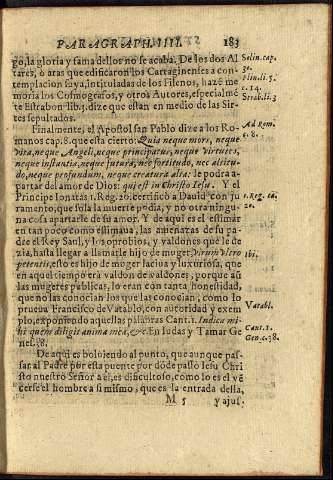 PARAGRAPH. IIII. 183
go, la gloria y fama dellos no se acaba. De los dos Al
tares, o aras que edificaron los Cartaginenses a con-
templacion suya, intituladas de los Filenos, hazẽ me
moria los Cosmografos, y otros Autores, especialmẽ
te Estrabon lib. 3. dize que estan en medio de las Sir-
tes sepultados.
Solin. cap.
Plin. li. 5.
c. 14.
Strab. li. 3
Finalmente, el Apostol san Pablo dize a los Ro-
manos cap. 8. que esta cierto: Quia neque mors, neque
vita, neque Angeli, neque principatus, neque virtutes,
neque instantia, neque futura, nec fortitudo, nec altitu-
do, neque profundum, neque creatura alia: le podra a-
partar del amor de Dios: qui est in Christo Iesu. Y el
Principe Ionatas 1. Reg. 20. certificò a Dauid con ju
ramento, que sola la muerte podia, y no otra ningu-
na cosa apartarle de su amor. Y de aqui es el estimar
en tan poco como estimaua, las amenazas de su pa-
dre el Rey Saul, y los oprobios, y valdones que le de
zia, hasta llegar a llamarle hijo de muger Virum vltro
petentis, esto es hijo de moger laciua y luxuriosa, que
en aquel tiempo era valdon de valdones, porque aũ
las mugeres publicas, lo eran con tanta honestidad,
que no las conocian los que las conocian, como lo
prueua Francisco de Vatablo, con autoridad y exem
plo, exponiendo aquellas palabras Cant. 1. Indica mi-
hi quem diligit anima mea, &c. En Iudas y Tamar Ge
nes. 38.
Ad Rom.
c. 8.
1. Reg. ca.
20.
ibi.
Vatabl.
Cant. 1.
Gen. c. 38.
De aqui es boluiendo al punto, que aunque pas-
sar al Padre por esta puente por dõde passò Iesu Chri
sto nuestro Señor a el, es dificultoso, como lo es el vẽ
cerse el hombre a si mismo, que es la entrada della,
M 5 y ajus-